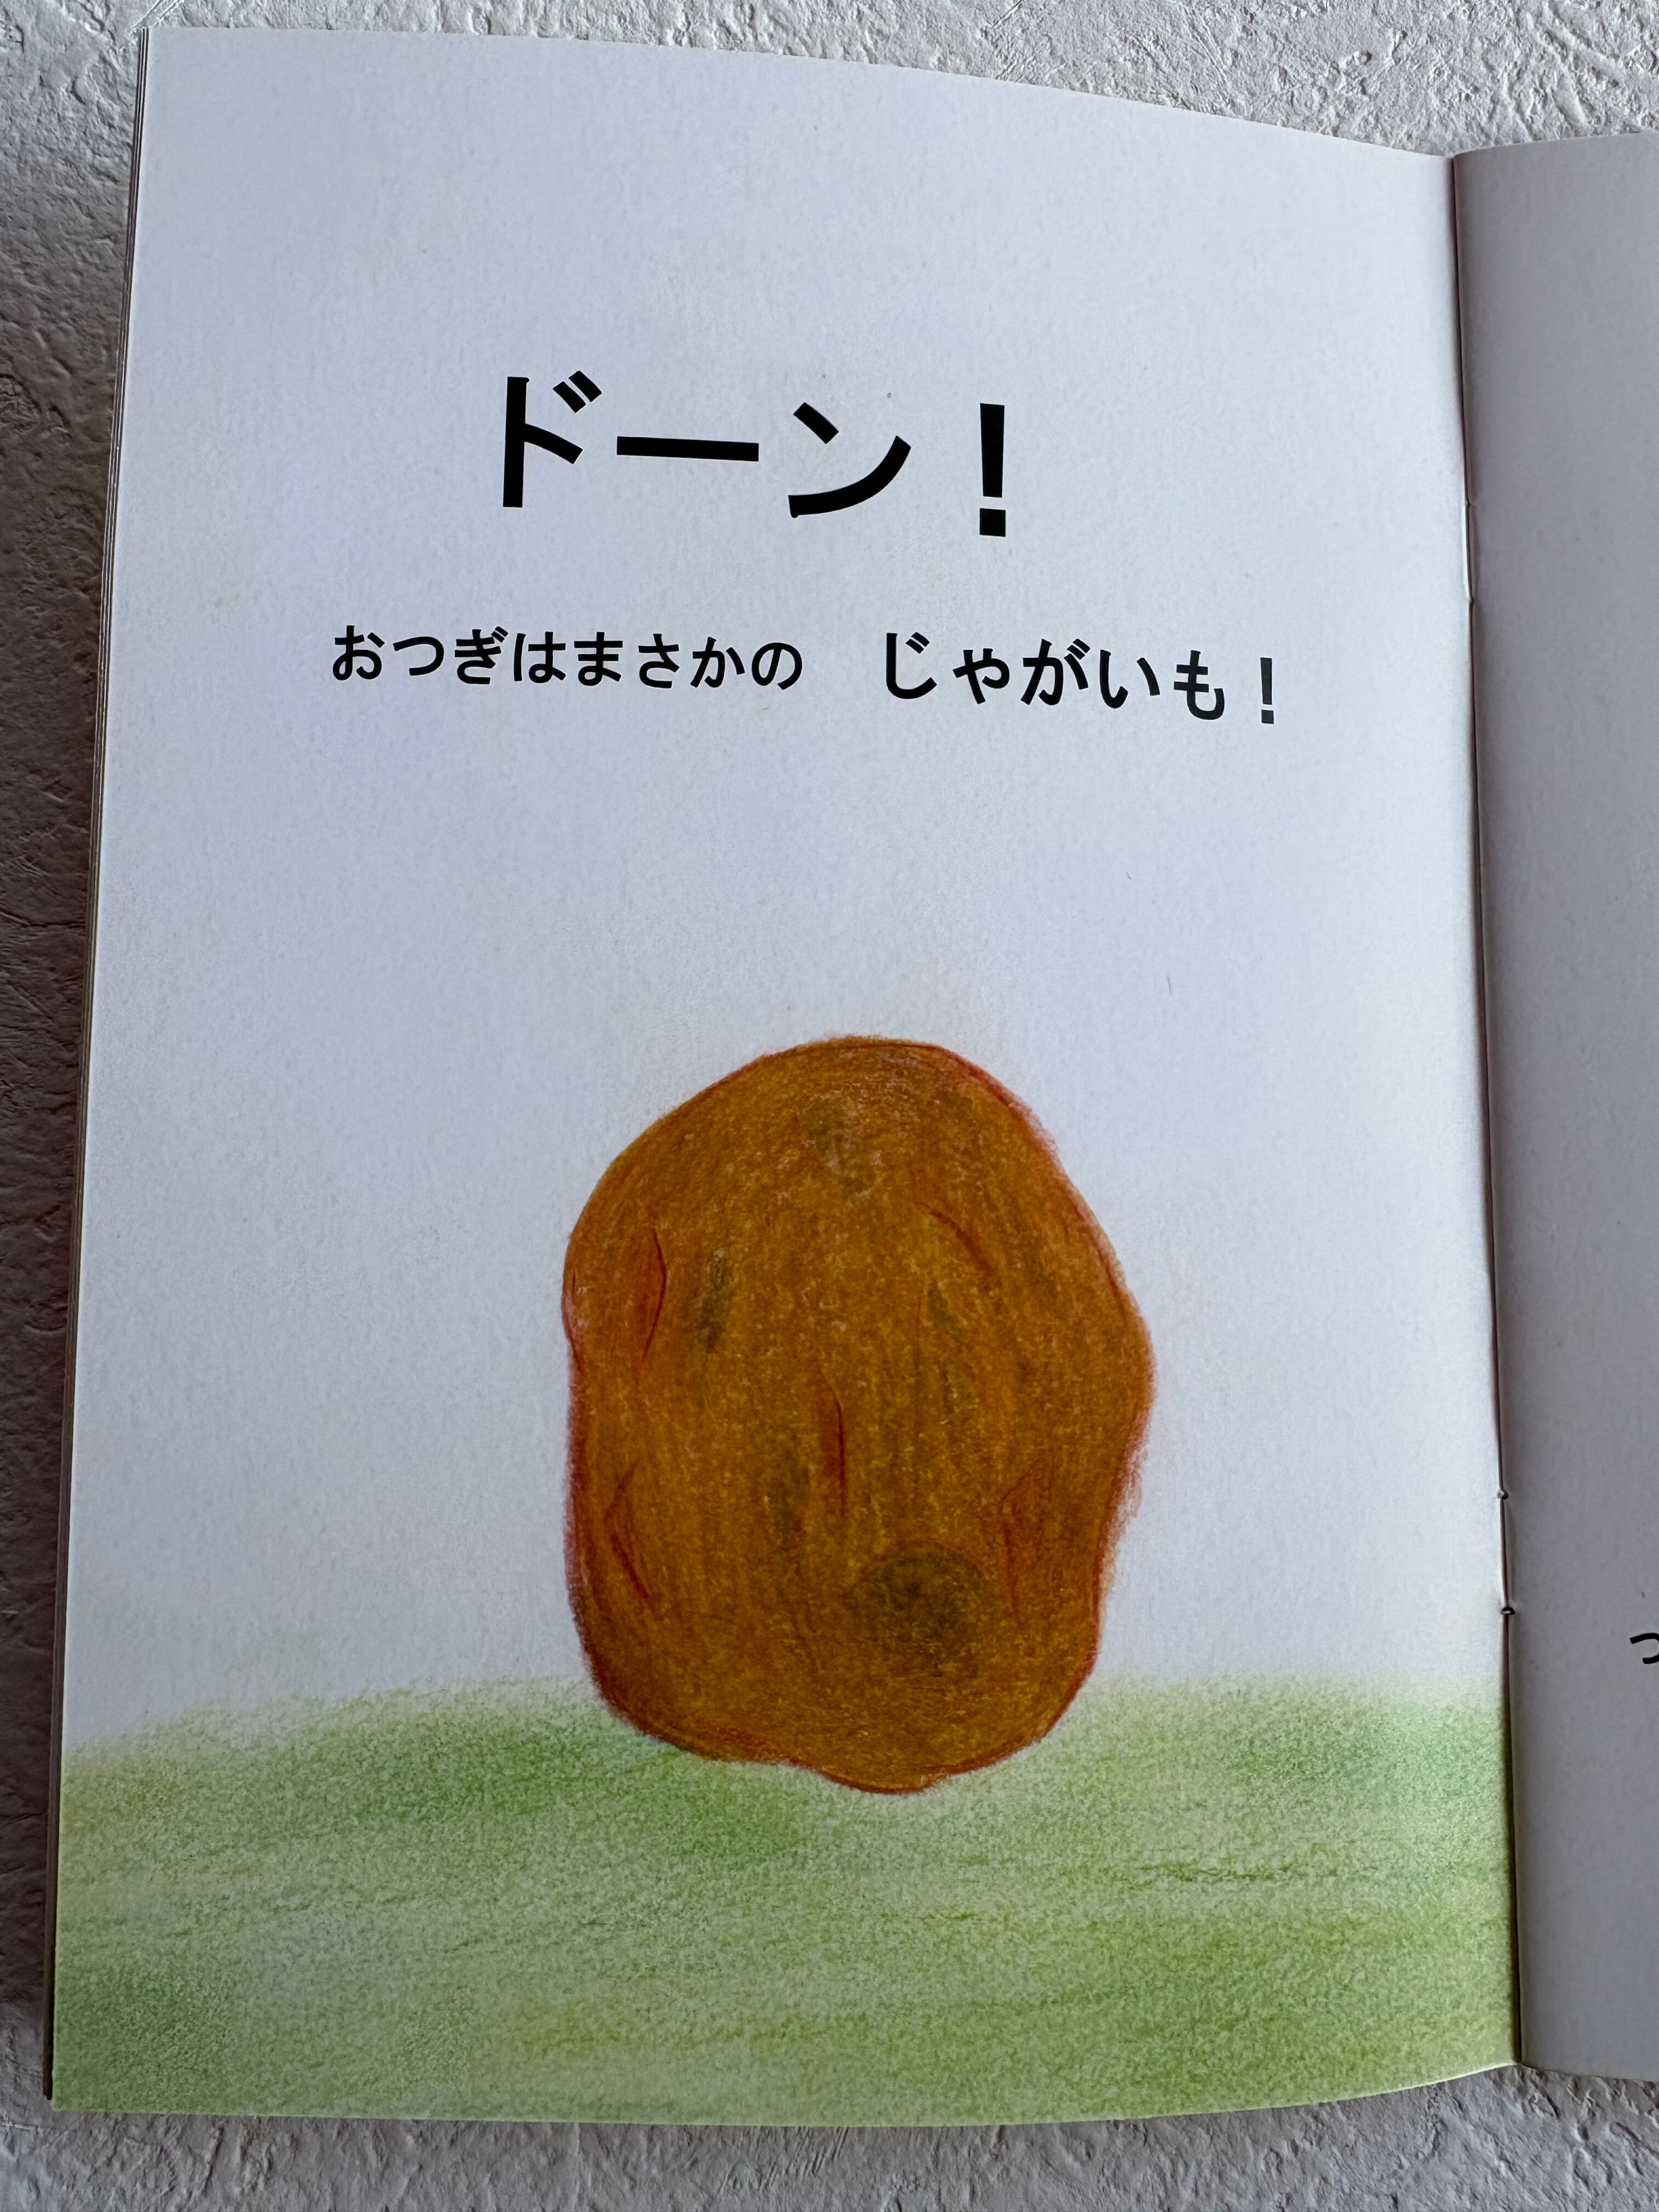 ドーン！
おつぎはまさかの　じゃがいも！
つ